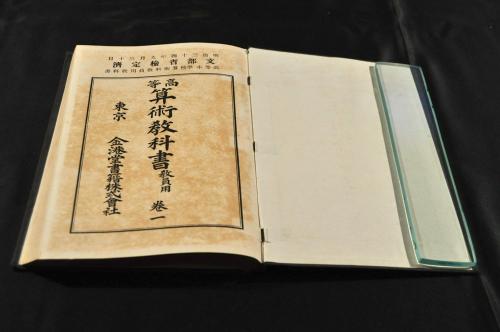 明治三十四年九月三十日
文部省檢定濟
高等小學校算術科教員用教科書
高等
算術教科書 教員用 卷一
東京 金港堂書籍株式會社